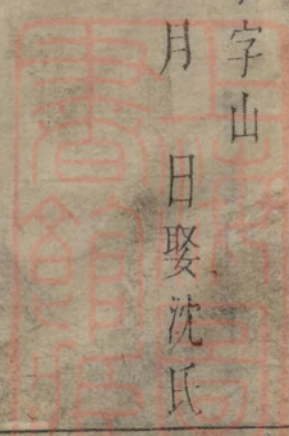 字山
月　日娶沈氏